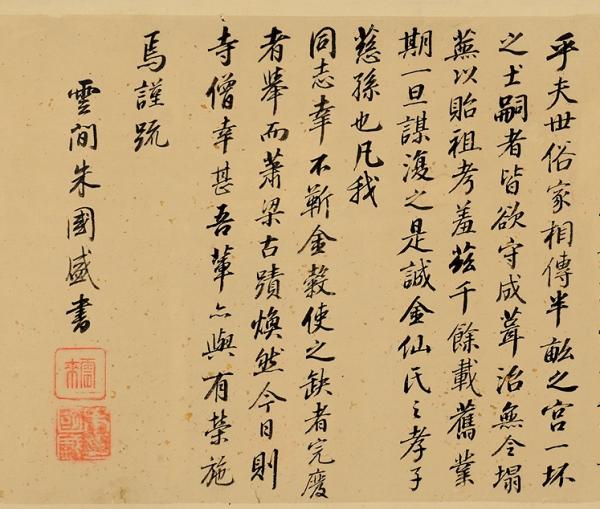 乎夫世俗家相傳半畝之宮一坏
之士嗣者皆欲守成葺治無令塌
蕪以貽祖考羞茲千餘載舊業
期一旦謀復之是誠金仙氏之孝子
慈孫也凡我
同志幸不靳金穀使之缺者完廢
者舉而蕭梁古蹟煥然今日則
寺僧幸甚吾輩亦與有榮施
焉謹疏
雲間朱國盛書